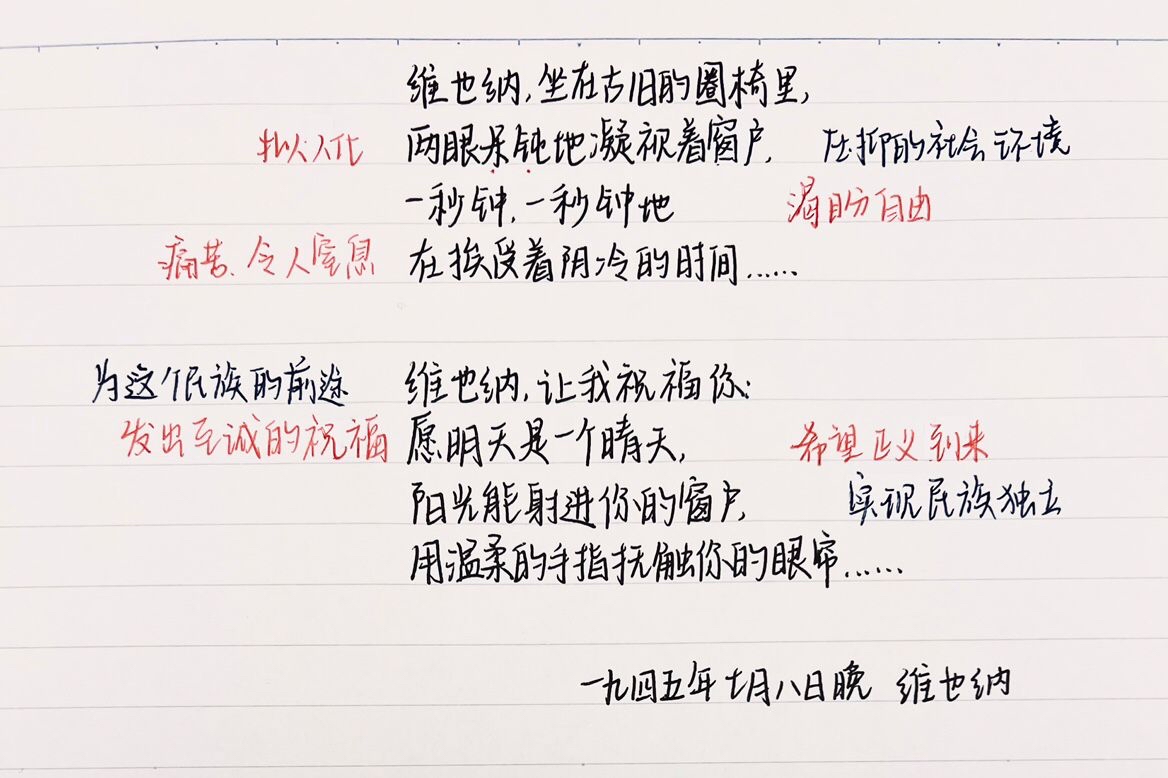 维也纳，坐在古旧的圈椅里，
拟人化 两眼呆钝地凝视着窗户， 压抑的社会环境
一秒钟，一秒钟地 渴盼自由
痛苦、令人窒息 在挨受着阴冷的时间……
为这个民族的前途 维也纳，让我祝福你：
发出至诚的祝福 愿明天是一个晴天， 希望正义到来
阳光能射进你的窗户， 实现民族独立
用温柔的手指抚触你的眼帘……
一九四五年七月八日晚 维也纳